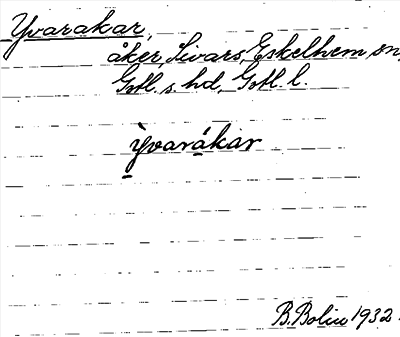 Yvarakar,
åker, Sivars, Eskelhem sn,
Gotl. s. hd, Gotl. l.
Yvarákar
B. Bolin 1932.